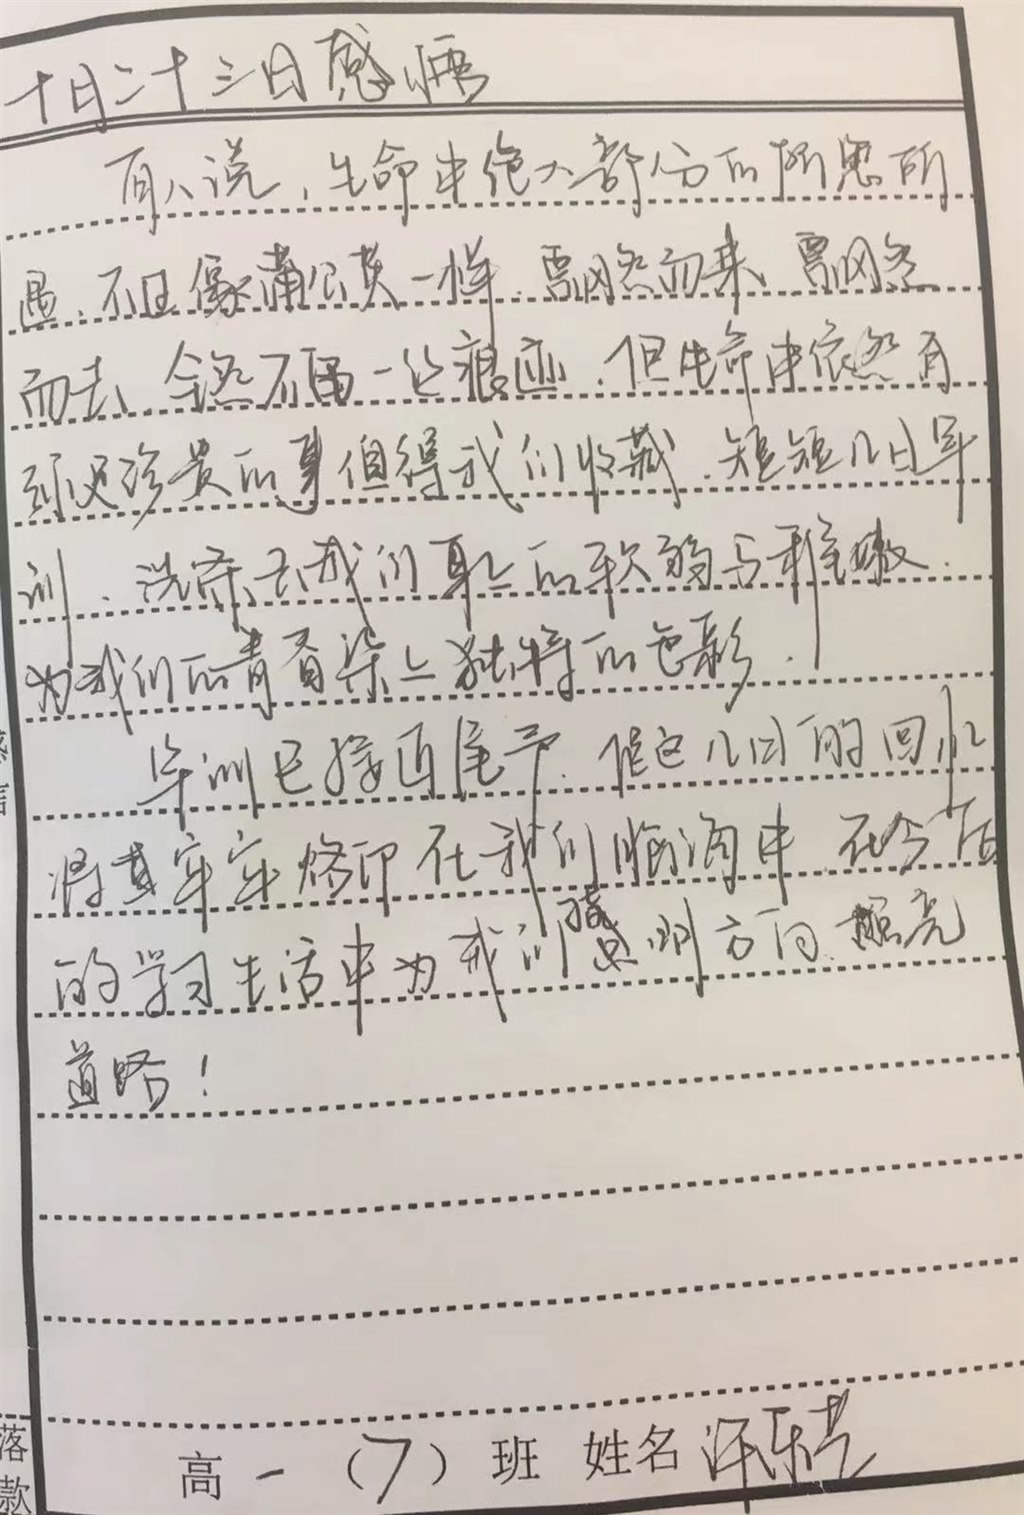 十月二十三日感悟
有人说，生命中绝大部分的所思所
遇，不过像蒲公英一样，飘然而来，飘然
而去，全然不留一丝痕迹，但生命中依然有
珍贵的事值得我们收藏，短短几日军
训，洗涤去我们身上的软弱与稚嫩，
为我们的青春染上独特的色彩．
军训已接近尾声，但这几日的回忆
将其牢牢烙印在我们脑海中，在今后
的学习生活中为我们指明方向，照亮
道路！
高一（7）班 姓名
落
款